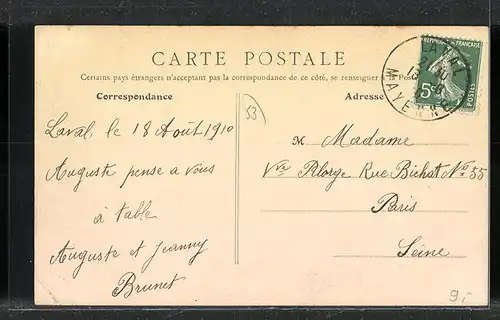 CARTE POSTALE
Certains pays étrangers n'acceptant pas la correspondance de ce côté, se renseigner à la Poste
Correspondance
Adresse
53
Laval, le 18 Août 1910
Auguste pense a vous
à table
Auguste et Jeanny
Brunet
Madame
Vve Plorge Rue Bichat No 55
Paris
Seine
REPUBLIQUE FRANÇAISE
5c
POSTES
LAVAL
MAYENNE
9,-